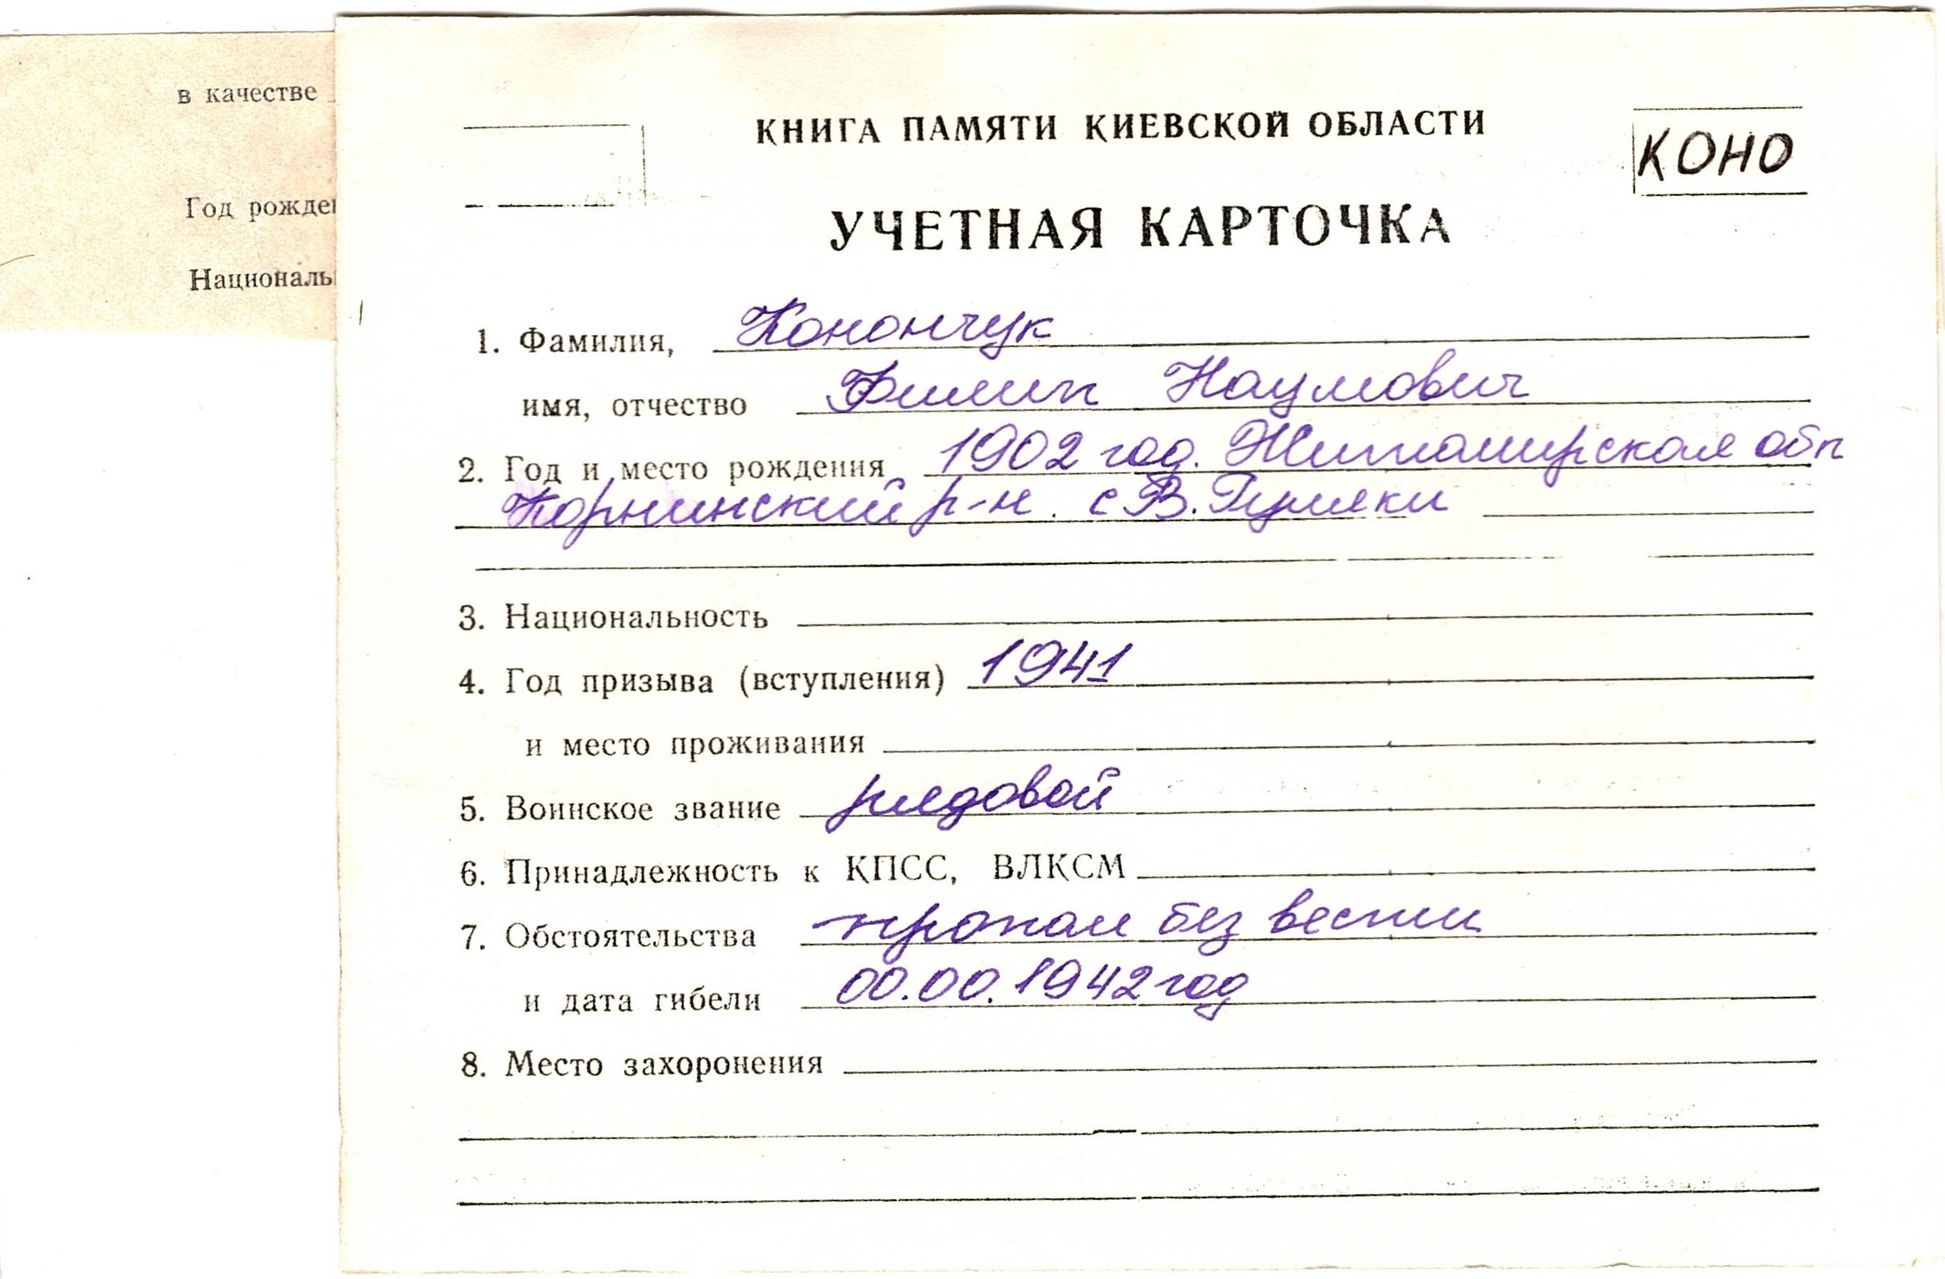 в качестве
Год рожде
Националь
КНИГА ПАМЯТИ КИЕВСКОЙ ОБЛАСТИ
КОНО
УЧЕТНАЯ КАРТОЧКА
1. Фамилия, Конончук
имя, отчество Филип Наумович
2. Год и место рождения 1902 год. Житомирская обл
Корнинский р-н. с В. Гуляки
3. Национальность
4. Год призыва (вступления) 1941
и место проживания
5. Воинское звание рядовой
6. Принадлежность к КПСС, ВЛКСМ
7. Обстоятельства пропал без вести
и дата гибели 00.00.1942 год
8. Место захоронения